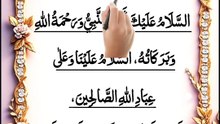 السَّلَامُ عَلَيْكَ النَّبِيُّ وَرَحْمَةُ اللهِ
وَبَرَكَاتُهُ، السَّلَامُ عَلَيْنَا وَعَلَى
عِبَادِ اللهِ الصَّالِحِينَ،